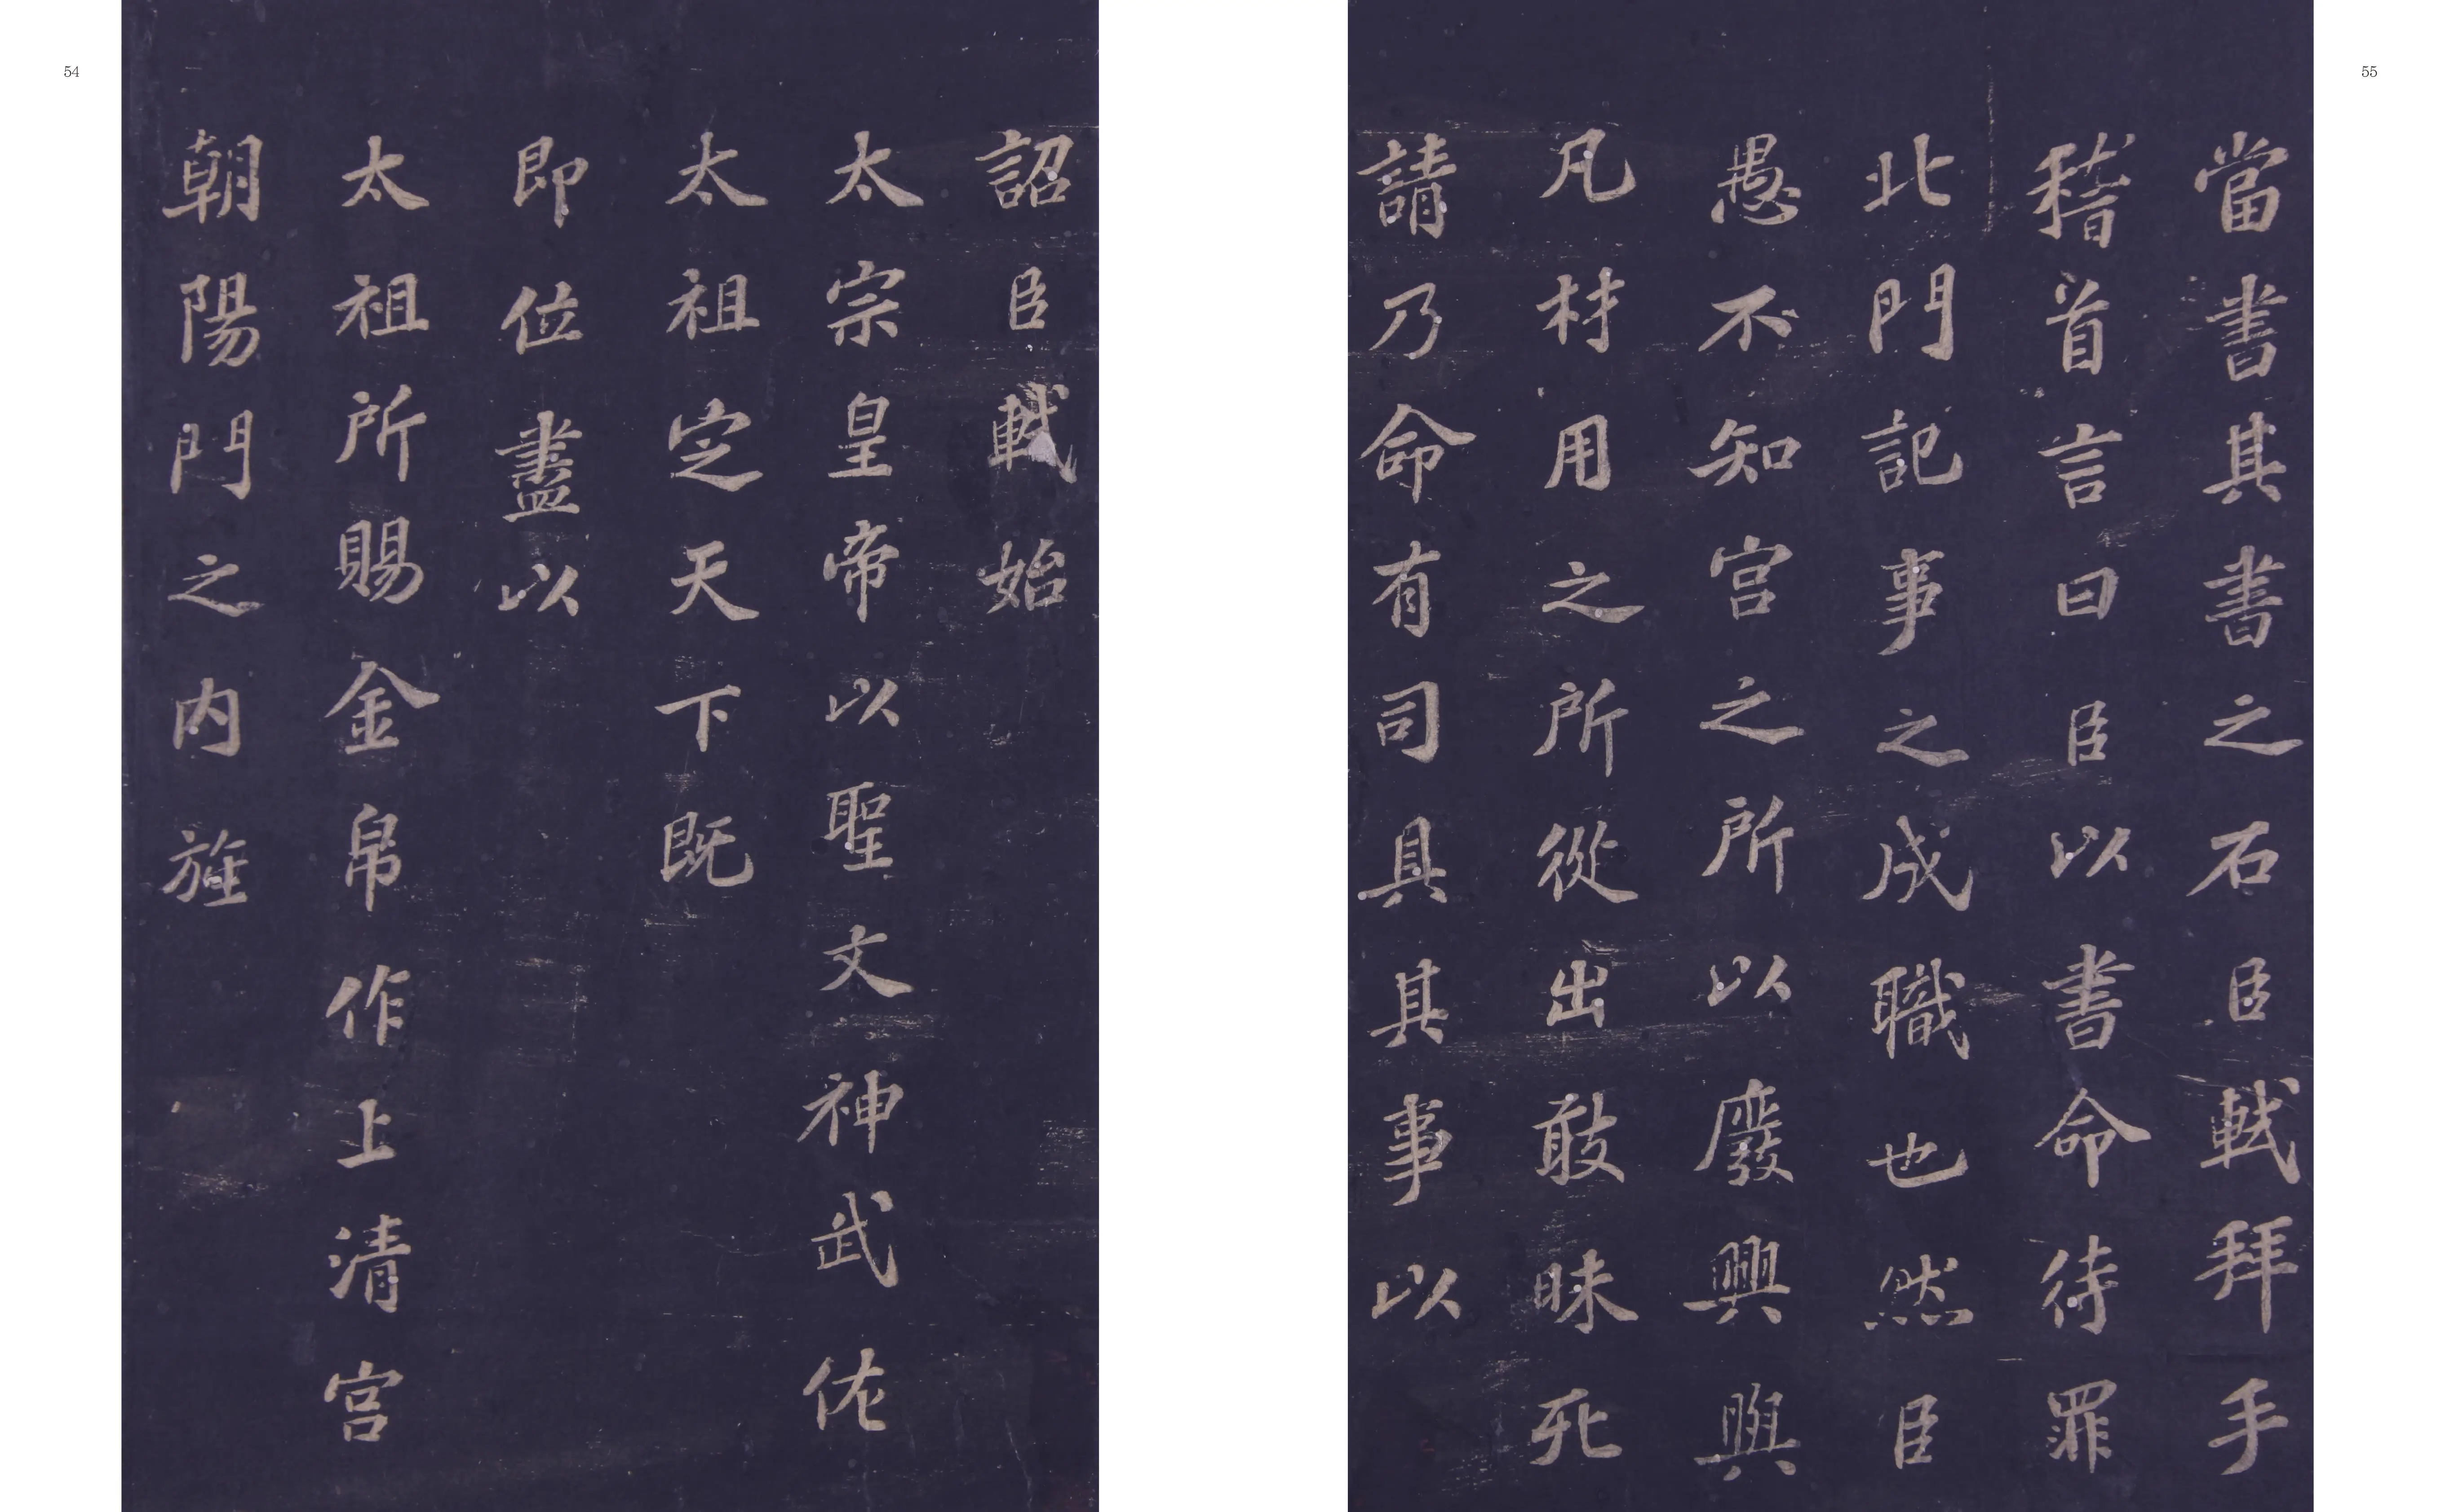 55
當書其書之石臣軾拜手
稽首言曰臣以書命待罪
北門記事之成職也然臣
愚不知宮之所以廢興與
凡材用之所從出敢昧死
請乃命有司具其事以
54
詔臣軾始
太宗皇帝以聖文神武佐
太祖定天下既
即位盡以
太祖所賜金帛作上清宮
朝陽門之內旌